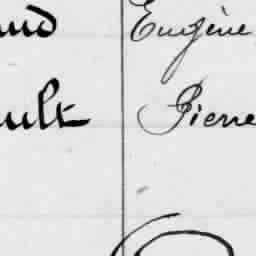 und Eugène
ult Pierre